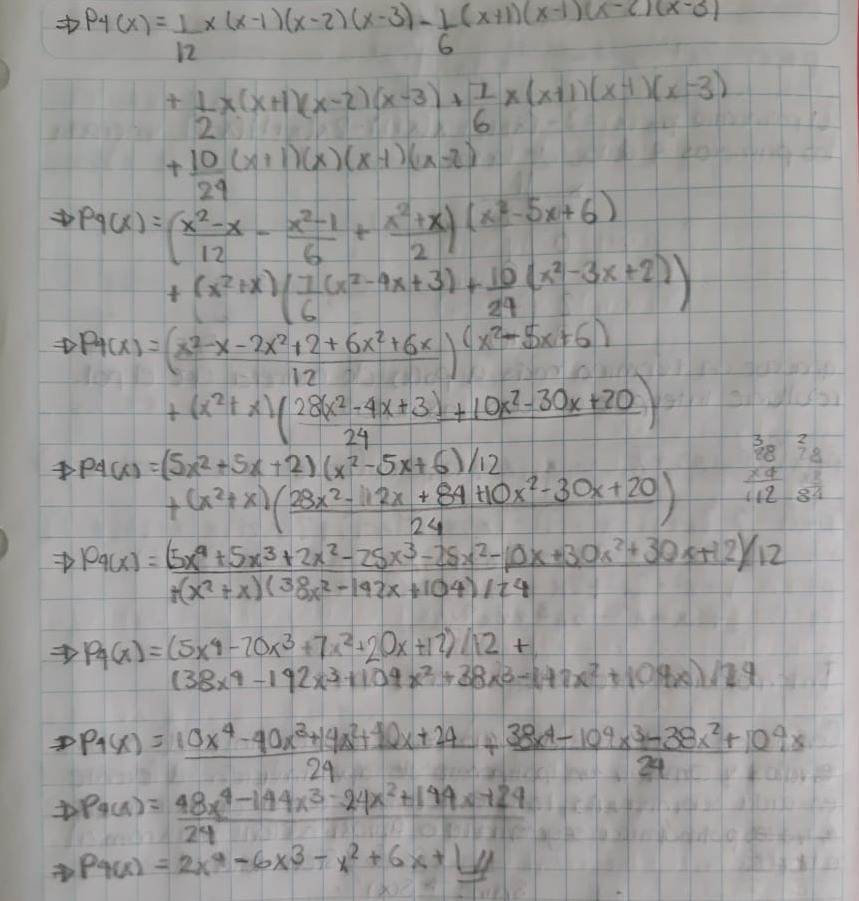 ⇒P4(x) = 1/12 x(x-1)(x-2)(x-3) - 1/6 (x+1)(x-1)(x-2)(x-3)
+ 1/2 x(x+1)(x-2)(x-3) + 7/6 x(x+1)(x-1)(x-3)
+ 10/24 (x+1)(x)(x-1)(x-2)
⇒P4(x) = ((x²-x)/12 - (x²-1)/6 + (x²+x)/2)(x²-5x+6)
+ (x²+x)(7/6 (x²-4x+3) + 10/24 (x²-3x+2))
⇒P4(x) = ((x²-x-2x²+2+6x²+6x)/12)(x²-5x+6)
+ (x²+x)((28(x²-4x+3)+10x²-30x+20)/24)
⇒P4(x) = (5x²+5x+2)(x²-5x+6)/12
+ (x²+x)((28x²-112x+84+10x²-30x+20)/24)
3 2
28 28
x4 3
112 84
⇒P4(x) = (5x⁴+5x³+2x²-25x³-25x²-10x+30x²+30x+12)/12
+(x²+x)(38x²-142x+104)/24
⇒P4(x) = (5x⁴-20x³+7x²+20x+12)/12 +
(38x⁴-142x³+104x²+38x³-142x²+104x)/24
⇒P4(x) = (10x⁴-40x³+14x²+40x+24)/24 + (38x⁴-104x³-38x²+104x)/24
⇒P4(x) = (48x⁴-144x³-24x²+144x+24)/24
⇒P4(x) = 2x⁴-6x³-x²+6x+1//